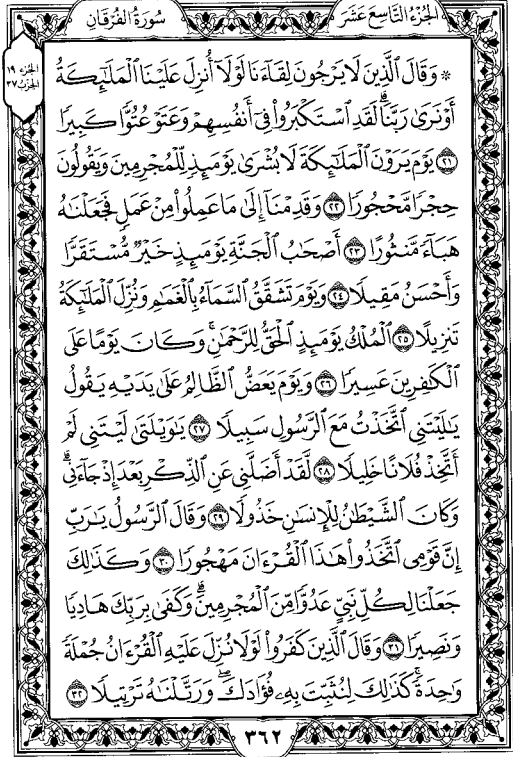 الجُزْءُ التَّاسِعَ عَشَرَ
سُورَةُ الفُرْقَانِ
الجزء ١٩
الحزب ٣٧
۞ وَقَالَ ٱلَّذِينَ لَا يَرْجُونَ لِقَآءَنَا لَوْلَآ أُنزِلَ عَلَيْنَا ٱلْمَلَٰٓئِكَةُ
أَوْ نَرَىٰ رَبَّنَا ۗ لَقَدِ ٱسْتَكْبَرُوا۟ فِىٓ أَنفُسِهِمْ وَعَتَوْ عُتُوًّا كَبِيرًا
٢١ يَوْمَ يَرَوْنَ ٱلْمَلَٰٓئِكَةَ لَا بُشْرَىٰ يَوْمَئِذٍ لِّلْمُجْرِمِينَ وَيَقُولُونَ
حِجْرًا مَّحْجُورًا ٢٢ وَقَدِمْنَآ إِلَىٰ مَا عَمِلُوا۟ مِنْ عَمَلٍ فَجَعَلْنَٰهُ
هَبَآءً مَّنثُورًا ٢٣ أَصْحَٰبُ ٱلْجَنَّةِ يَوْمَئِذٍ خَيْرٌ مُّسْتَقَرًّا
وَأَحْسَنُ مَقِيلًا ٢٤ وَيَوْمَ تَشَقَّقُ ٱلسَّمَآءُ بِٱلْغَمَٰمِ وَنُزِّلَ ٱلْمَلَٰٓئِكَةُ
تَنزِيلًا ٢٥ ٱلْمُلْكُ يَوْمَئِذٍ ٱلْحَقُّ لِلرَّحْمَٰنِ ۚ وَكَانَ يَوْمًا عَلَى
ٱلْكَٰفِرِينَ عَسِيرًا ٢٦ وَيَوْمَ يَعَضُّ ٱلظَّالِمُ عَلَىٰ يَدَيْهِ يَقُولُ
يَٰلَيْتَنِى ٱتَّخَذْتُ مَعَ ٱلرَّسُولِ سَبِيلًا ٢٧ يَٰوَيْلَتَىٰ لَيْتَنِى لَمْ
أَتَّخِذْ فُلَانًا خَلِيلًا ٢٨ لَّقَدْ أَضَلَّنِى عَنِ ٱلذِّكْرِ بَعْدَ إِذْ جَآءَنِى ۗ
وَكَانَ ٱلشَّيْطَٰنُ لِلْإِنسَٰنِ خَذُولًا ٢٩ وَقَالَ ٱلرَّسُولُ يَٰرَبِّ
إِنَّ قَوْمِى ٱتَّخَذُوا۟ هَٰذَا ٱلْقُرْءَانَ مَهْجُورًا ٣٠ وَكَذَٰلِكَ
جَعَلْنَا لِكُلِّ نَبِىٍّ عَدُوًّا مِّنَ ٱلْمُجْرِمِينَ ۗ وَكَفَىٰ بِرَبِّكَ هَادِيًا
وَنَصِيرًا ٣١ وَقَالَ ٱلَّذِينَ كَفَرُوا۟ لَوْلَا نُزِّلَ عَلَيْهِ ٱلْقُرْءَانُ جُمْلَةً
وَٰحِدَةً ۚ كَذَٰلِكَ لِنُثَبِّتَ بِهِۦ فُؤَادَكَ ۖ وَرَتَّلْنَٰهُ تَرْتِيلًا ٣٢
٣٦٢